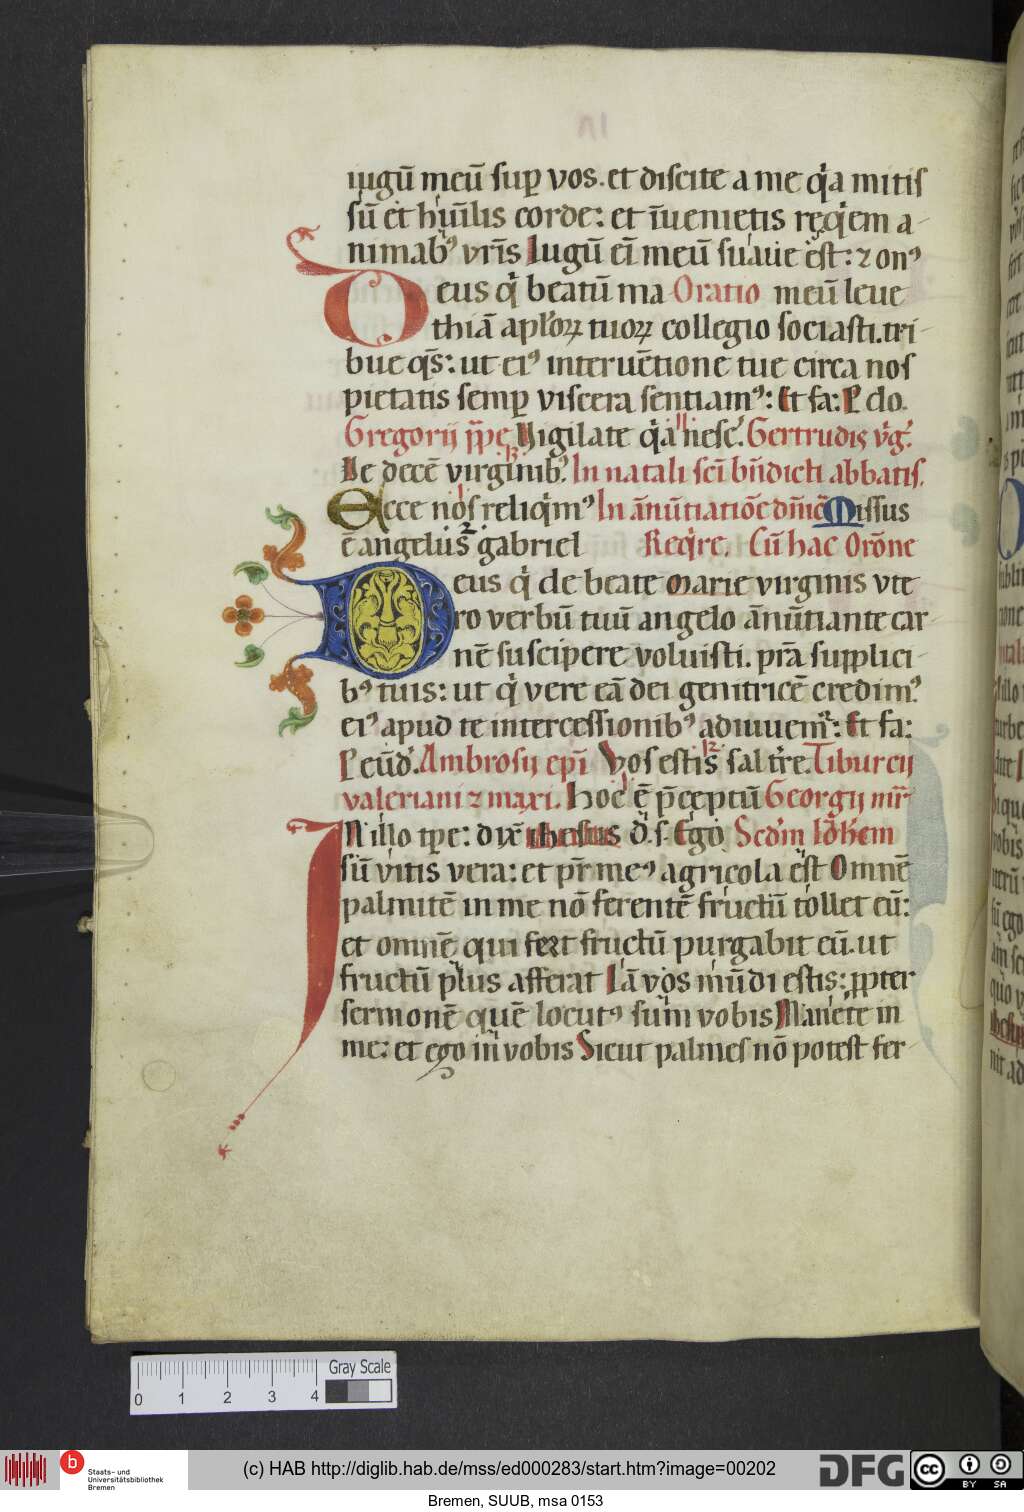 iugū meū sup vos. et discite a me qͥa mitis
sū et hūilis corde: et īuenietis reqͥem a-
nimabꝰ vrīs Iugū eī meū suaue est: ⁊ onꝰ
Deus qͥ beatū ma Oratio meū leue
thiā aplōꝝ tuoꝝ collegio sociasti. tri-
bue qs̄: ut eiꝰ interuētione tue circa nos
pietatis semp viscera sentiamꝰ: Et fa: P do.
Gregorii pp̄e Vigilate qͥa nesc. Gertrudis vḡ.
De decē virginibꝰ. In natali scī bn̄dicti abbatis.
Ecce nos reliqͥmꝰ In ānūtiatiōe dn̄ica Missus
ē angelus gabriel Reqͥre. Cū hac Orōne
Deus qͥ de beate marie virginis vte
ro verbū tuū angelo ānūtiante car
nē suscipere voluisti. prā supplici-
bꝰ tuis: ut qͥ vere eā dei genitricē credimꝰ
eiꝰ apud te intercessionibꝰ adiuuemr: Et fa:
P eūd. Ambrosii epī Vos estis sal tre. Tiburcii
valeriani ⁊ maxi. Hoc ē p̄ceptū Georgii mr̄-
IN illo tpe: dix̄ ihesus d. s. Ego Scdm Iohem
sū vitis vera: et pr̄ meꝰ agricola est Omnē
palmitē in me nō ferentē fructū tollet eū:
et omnē qui fert fructū purgabit eū. ut
fructū plus afferat Iā vos mūdi estis: ꝓpter
sermonē quē locutꝰ sum vobis Manete in
me: et ego in vobis Sicut palmes nō potest fer-
Gray Scale
0 1 2 3 4
b Staats- und
Universitätsbibliothek
Bremen
(c) HAB http://diglib.hab.de/mss/ed000283/start.htm?image=00202
DFG
cc BY SA
Bremen, SUUB, msa 0153